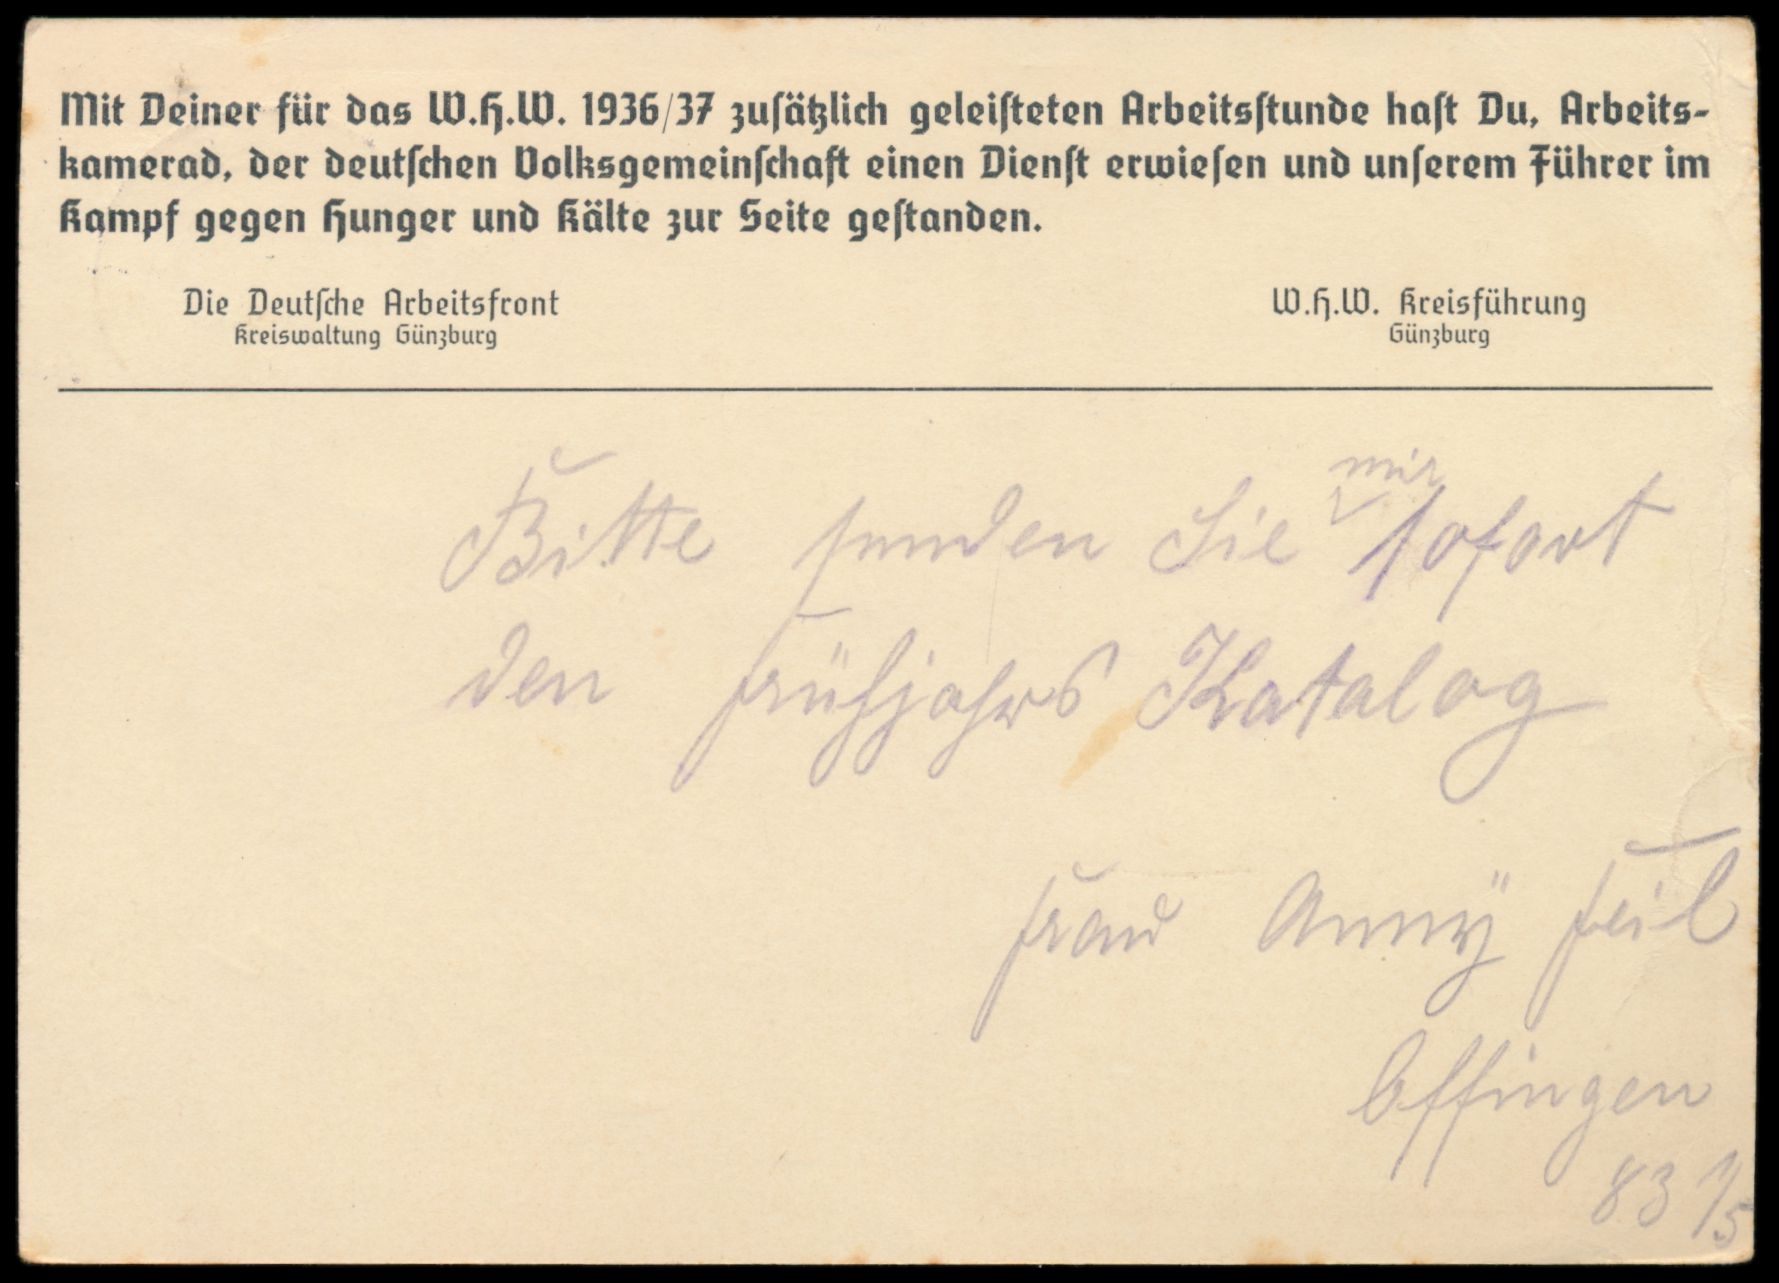 Mit Deiner für das W.H.W. 1936/37 zusätzlich geleisteten Arbeitsstunde hast Du, Arbeits-
kamerad, der deutschen Volksgemeinschaft einen Dienst erwiesen und unserem Führer im
Kampf gegen Hunger und Kälte zur Seite gestanden.
Die Deutsche Arbeitsfront
Kreiswaltung Günzburg
W.H.W. Kreisführung
Günzburg
Bitte senden Sie mir sofort
den Frühjahrs Katalog
Frau Anny Feil
Offingen
83 1/5